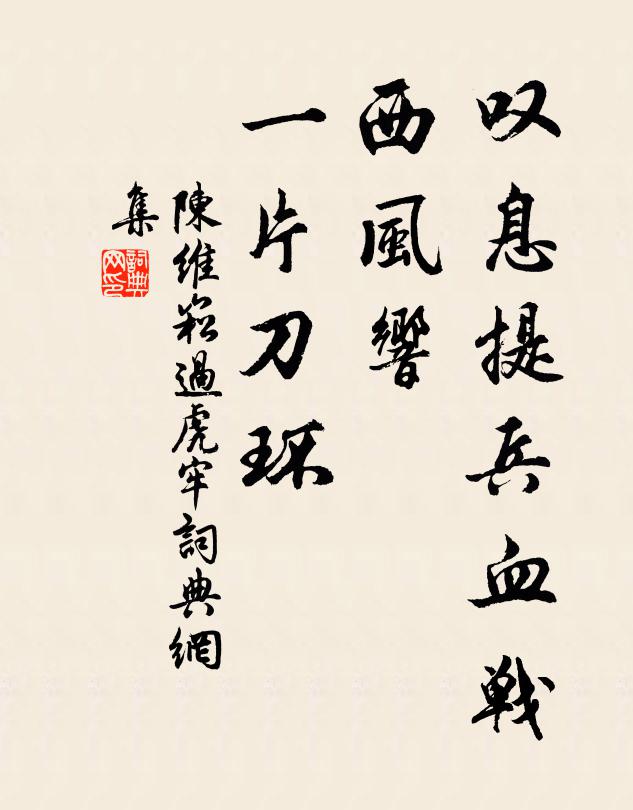 叹息提兵血戦
西風響
一片刀环
陳維崧過虎牢詞典網
集
詞典
网印